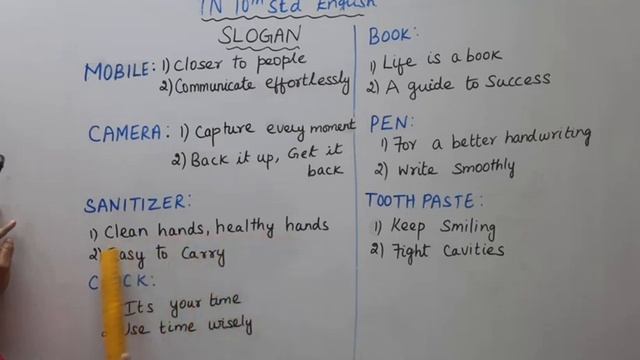 IN 10th Std English
SLOGAN
MOBILE: 1) Closer to people
2) Communicate effortlessly
CAMERA: 1) Capture every moment
2) Back it up, Get it
back
SANITIZER:
1) Clean hands, healthy hands
2) Easy to Carry
Its your time
Use time wisely
BOOK:
1) Life is a book
2) A guide to Success
PEN:
1) For a better handwriting
2) Write Smoothly
TOOTH PASTE:
1) Keep Smiling
2) Fight Cavities